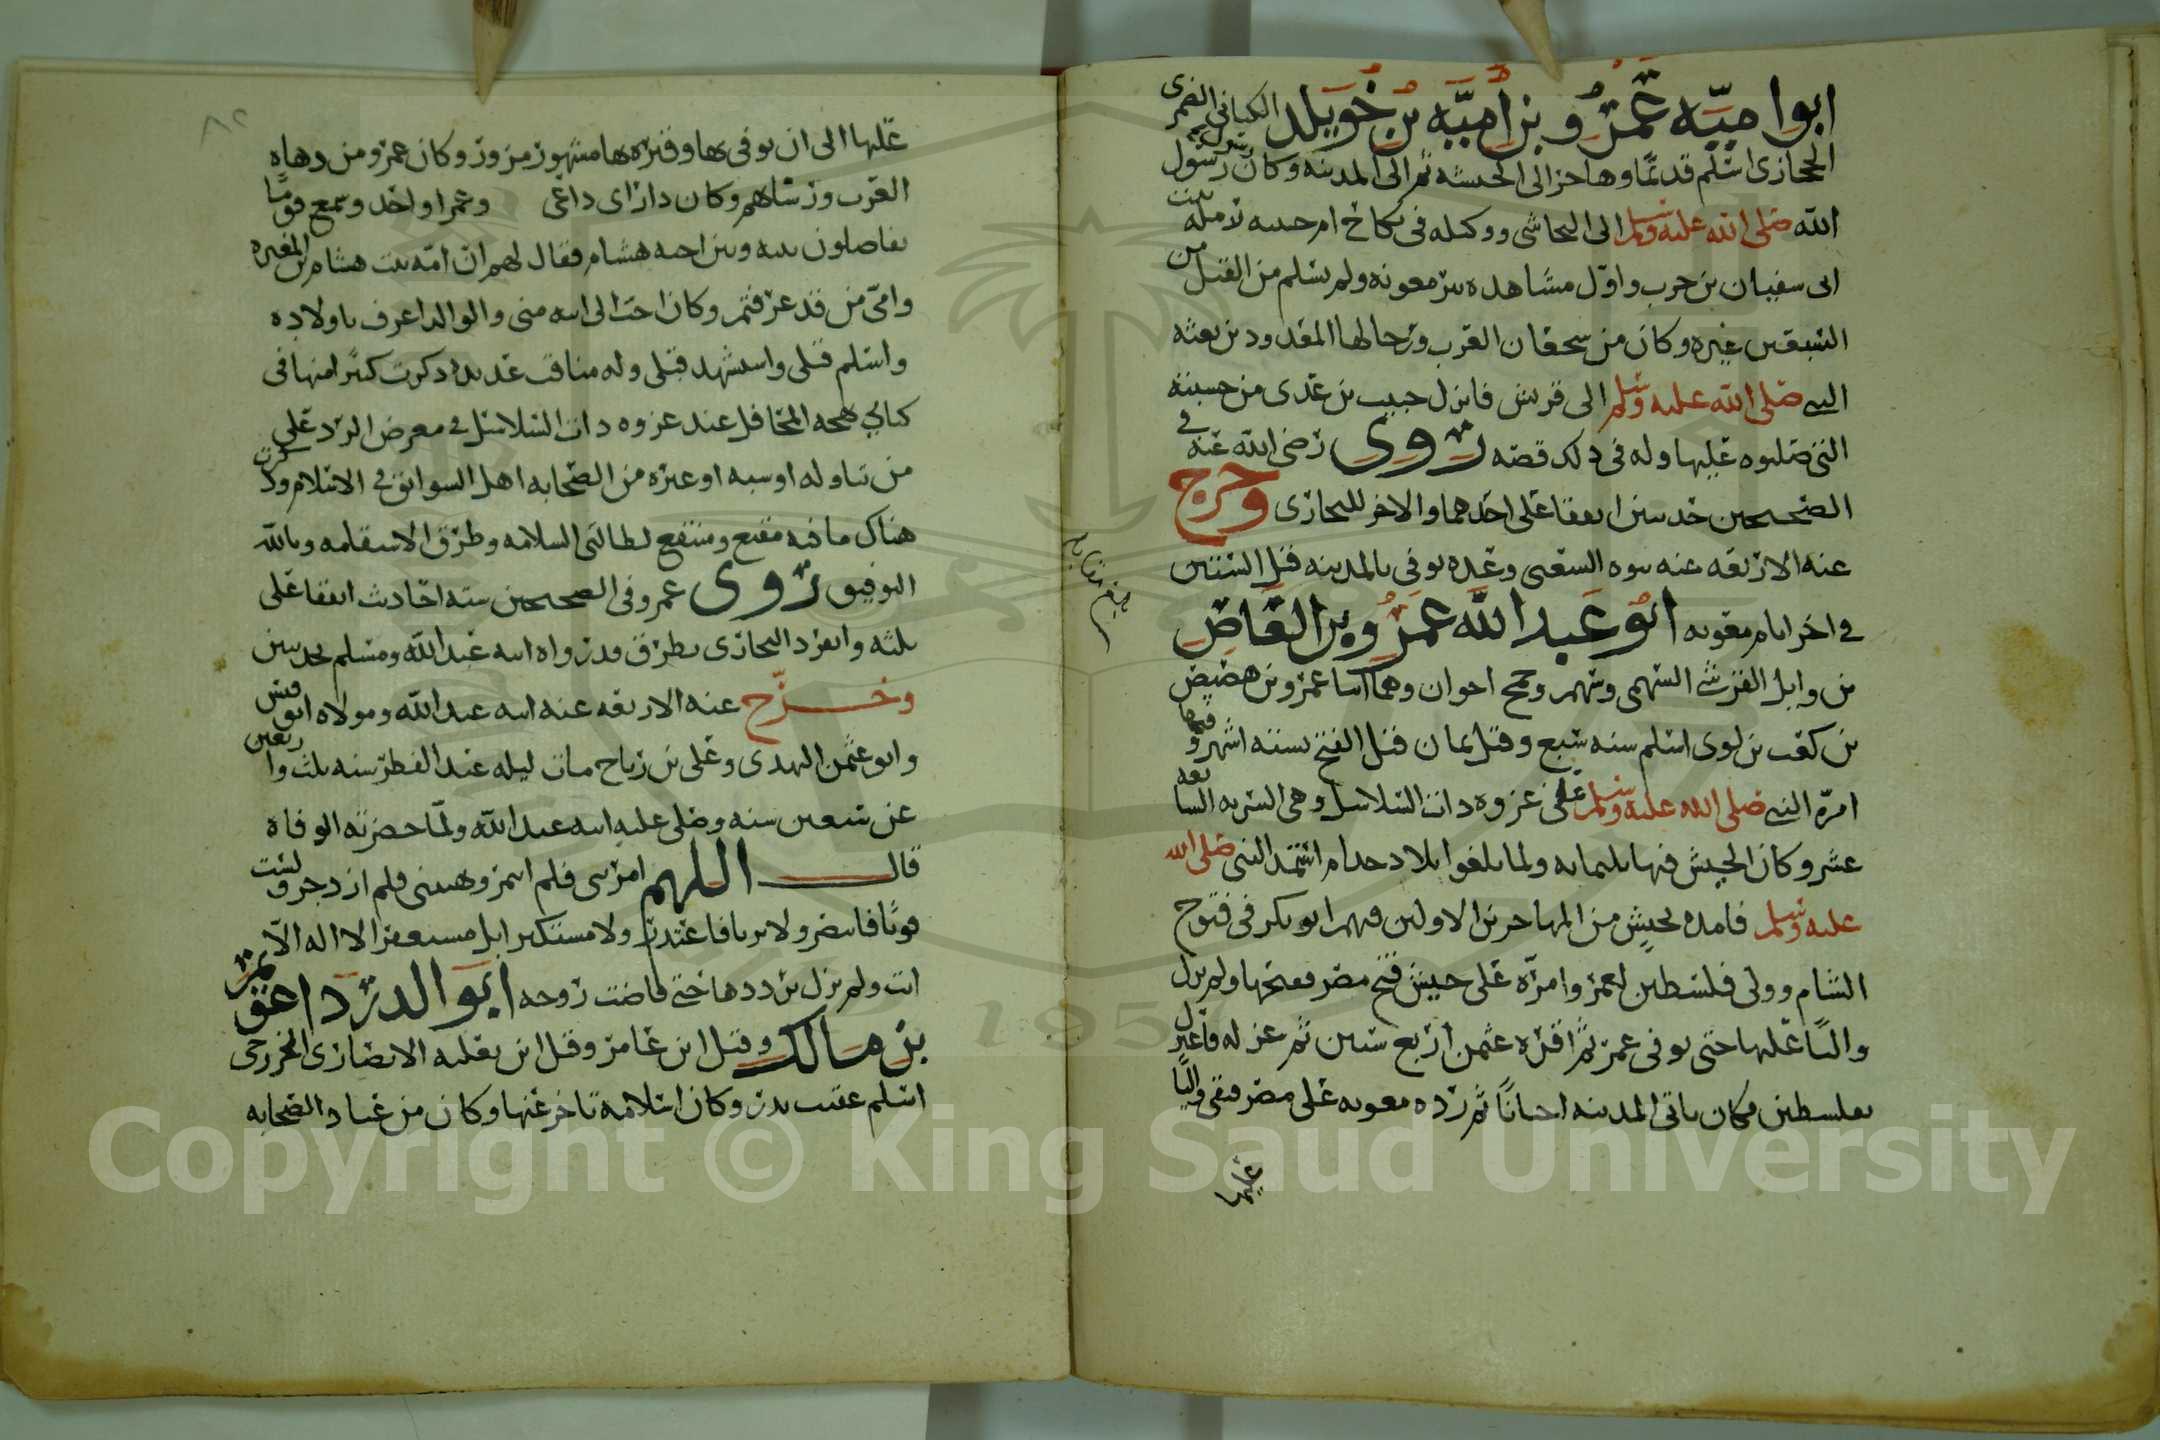 ابوا ميّه عَمرو بن اُميَّه بن خُوَيلد الكناني الضمرى
الحجازى اسلم قديمًا وهاجر الى الحبشه ثم الى المدينه وكان رسول
الله صلى الله عليه وسلم الى النجاشى ووكيله فى نكاح ام حبيبه رمله بنت
ابى سفيان بن حرب واوّل مشاهده بير معونه ولم يسلم من القتل من
السبعين غيره وكان من شجعان العرب ورجالها المعدودين بعثه
النبي صلى الله عليه وسلم الى قريش فانزل خبيب بن عدى من خشبته
التى صلبوه عليها وله فى ذلك قصه روى رضى الله عنه في
الصحيحين حديثين اتفقا على احدهما والاخر للبخارى وخرج
عنه الاربعه عنه بنوه الشعبى وغيره توفي بالمدينه قبل الستين
في اخر ايام معويه ابو عَبد الله عَمرو بن العَاص
بن وايل القرشي السهمى وسهم وجمح اخوان وهما ابنا عمرو بن هصيص
بن كعب بن لوى اسلم سنه سبع وقيل ثمان قبل الفتح بستة اشهر وفيها
امرّه النبي صلى الله عليه وسلم على غزوه ذات السلاسل وهى السريه السابعه
عشر وكان الجيش فيها ثلثمايه ولما بلغوا بلاد جذام استمد النبى صلى الله
عليه وسلم فامده بجيش من المهاجرين الاولين فيهم ابو بكر فى فتوح
الشام وولى فلسطين لعمر وامرّه على جيش فتح مصر ففتحها ولم يزل
والـيًا عليها حتى توفى عمر ثم اقره عثمن اربع سنين ثم عزله فاعتزل
بفلسطين وكان ياتى المدينه احيانًا ثم رده معويه على مصر فبقى واليًا
عليها
عليها الى ان توفى بها وقبره بها مشهور مزور وكان عمرو من دهاه
العرب ورؤساهم وكان دا راى داعى وعمرا واخذ وسمع قومًا
يفاضلون بينه وبين اخيه هشام فقال لهم ان امّه بنت هشام بن المغيره
وامّى من قد عرفتم وكان احب الى ابيه منى والوالد اعرف باولاده
واسلم قبلى واستشهد قبلى وله مناقب عديده ذكرت كثيرًا منها فى
كتابي بهجه المحافل عند غزوه ذات السلاسل في معرض الرد على
من تناوله او سبه او غيره من الصحابه اهل السوابق في الاسلام وذكرت
هناك ما فيه مقنع ومنتفع لطالبى السلامه وطرق الاستقامه وبالله
التوفيق روى عمرو فى الصحيحين سته احاديث اتفقا على
ثلثه وانفرد البخارى بطرق قد رواه ابنه عبد الله ومسلم بحديثين
وخـــرَّج عنه الاربعه عنه ابنه عبد الله ومولاه ابو قيس
وابو عثمن النهدى وعلى بن رباح مات ليله عيد الفطر سنه ثلث واربعين
عن تسعين سنه وصلى عليه ابنه عبد الله ولمّا حضرته الوفاة
قالـــ اللهم امرتنى فلم اتمر ونهيتنى فلم ازدجر ولست
قويًا فانتصر ولا بريا فاعتذر ولا مستكبر ابل مستغفر الا اله الّا
انت ولم يزل يرددها حتى فاضت روحه ابَو الدردَاء عويمر
بن مالك وقيل ابن عامر وقيل ابن ثعلبه الانصارى الخزرجى
اسلم عقيب بدر وكان اسلامه تاخر عنها وكان من عباد الصحابه
Copyright © King Saud University
1957